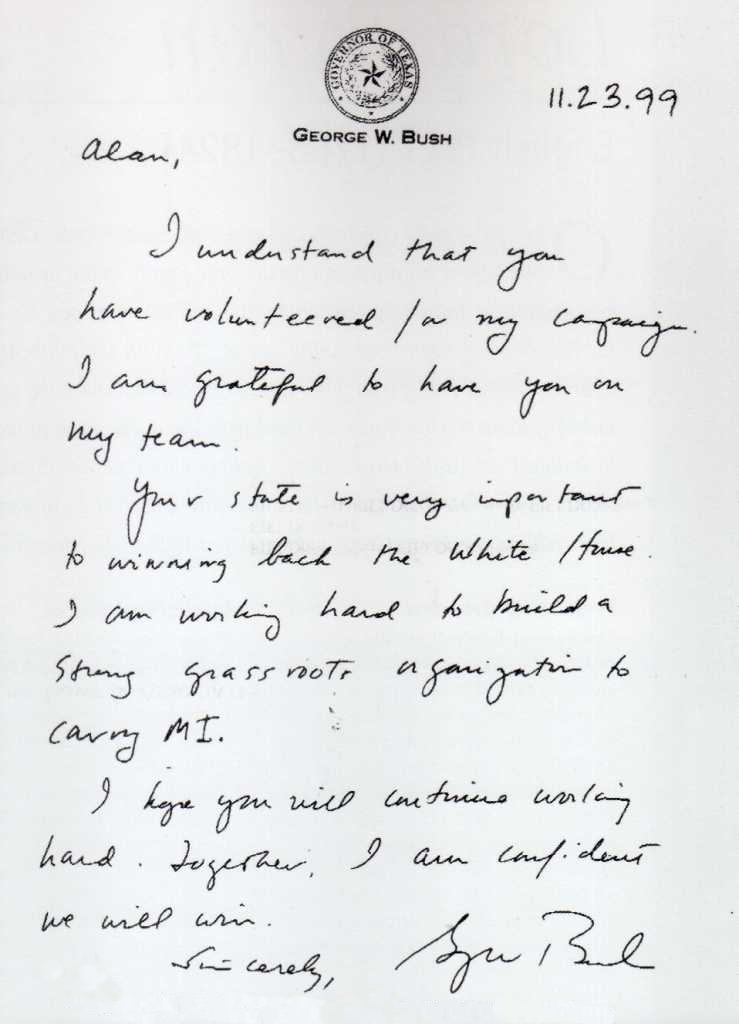 GOVERNOR OF TEXAS
GEORGE W. BUSH
11.23.99
Alan,
I understand that you
have volunteered for my campaign.
I am grateful to have you on
my team.
Your state is very important
to winning back the White House.
I am working hard to build a
strong grass roots organization to
carry MI.
I hope you will continue working
hard. Together, I am confident
we will win.
Sincerely, George Bush